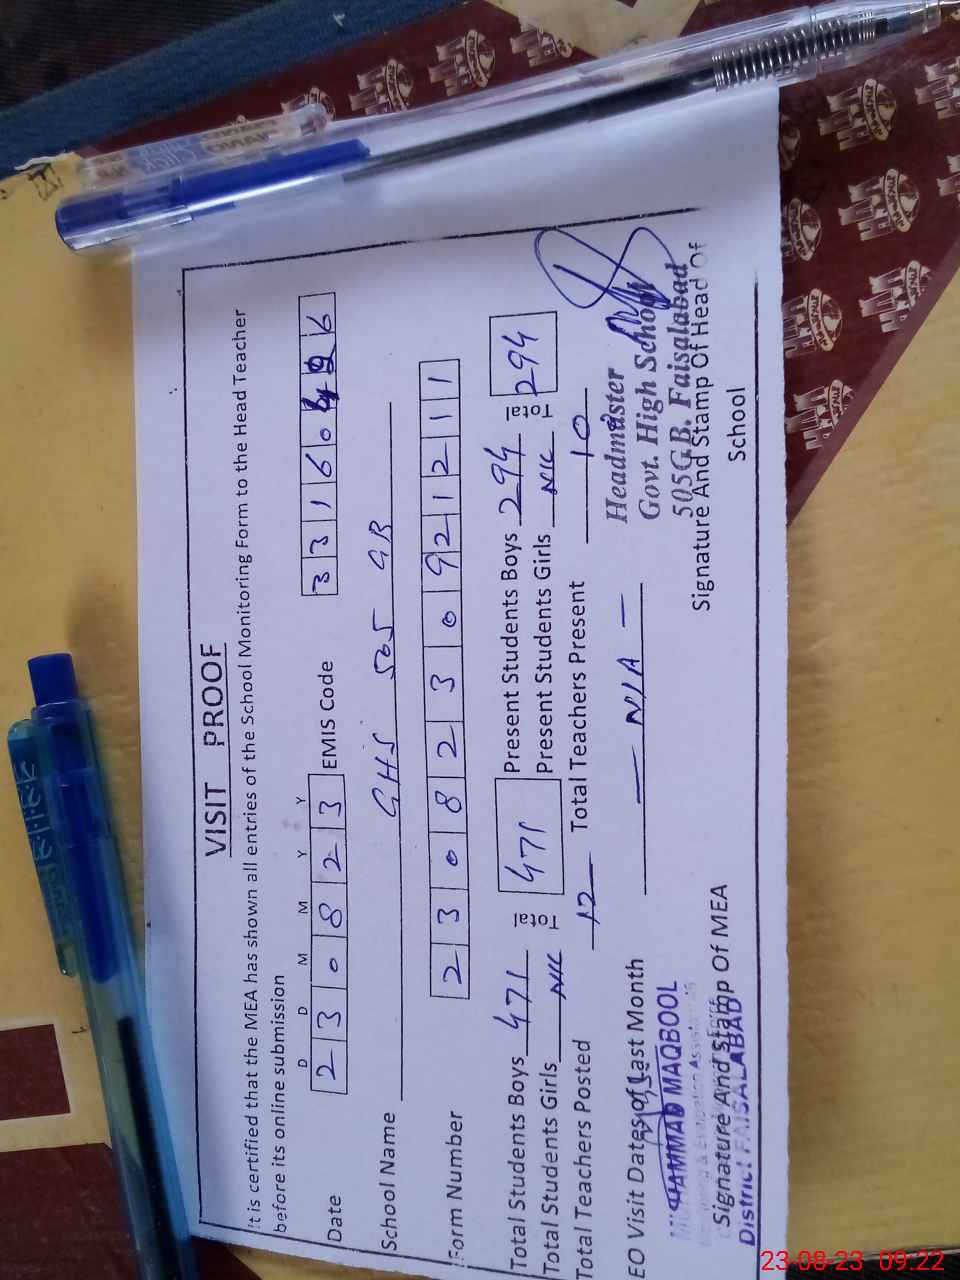 VISIT PROOF
It is certified that the MEA has shown all entries of the School Monitoring Form to the Head Teacher
before its online submission
D D M M Y Y
Date 2 3 0 8 2 3 EMIS Code 3 3 1 6 0 6
School Name GHS 505 GB
Form Number 2 3 0 8 2 3 0 9 2 1 2 1 1
Total Students Boys 471 Total 471 Present Students Boys 294 Total 294
Total Students Girls NIL Present Students Girls NIL
Total Teachers Posted 12 Total Teachers Present 10
EO Visit Dates of Last Month — N/A —
MUHAMMAD MAQBOOL
Monitoring & Evaluation Assistant
Signature And Stamp Of MEA
District FAISALABAD
Headmaster
Govt. High School
505GB. Faisalabad
Signature And Stamp Of Head Of
School
23-08-23 09:22